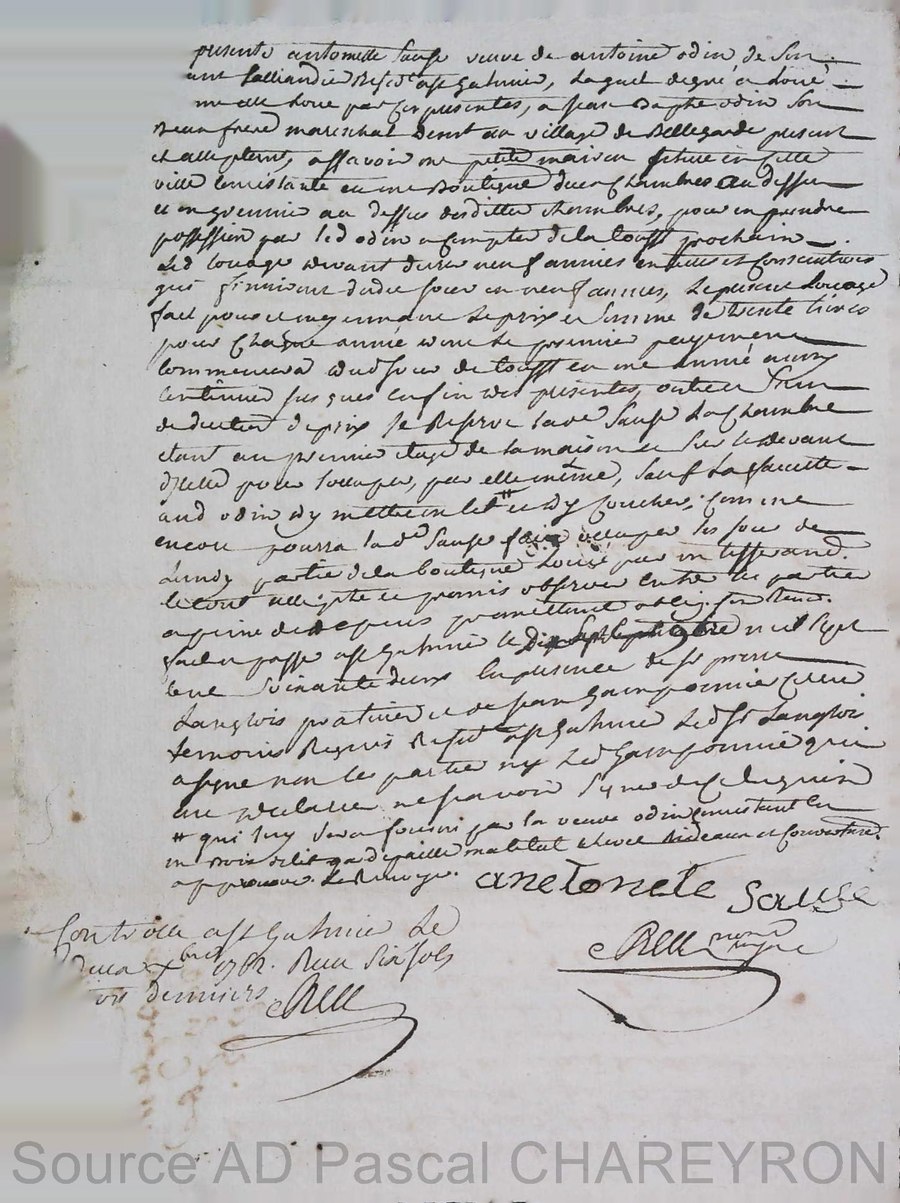 presente antoinette Sause veuve de antoine odin de Son
Resid.te a st Galmier, laquelle de gré a loué
comme elle loue par ces presentes, a jean Bapte odin Son
Beau frère mareschal demt au village de Bellegarde present
et acceptent, assavoir une petitte maison scituée en cette
ville consistante en une Boutique deux Chambres au dessus
et un grennier au dessus desdittes chambres, pour en prendre
possession par led odin a compter de la toussts prochain
Led louage devant durer neuf années entières et Consecutives
qui finiront dudit jour en neuf années, Le present Louage
fait pour et moyennant Le prix et Somme de trente livres
pour Chaque année dont Le premier payement
Commencera dudit jour de toussts en une année
Continuer jusques en fin des presentes, outre et Sans
deduction du prix Se Reserve lade Sause La Chambre
étant au premier étage de la maison et Sur le devant
d'icelle pour l'occuper, par elle même, Sauf La faculté
aud odin d'y mettre un lit # et d'y Coucher, Comme
encore pourra lade Sause faire occuper les jour de
Lundy partie de la boutique Louée par un tisserand.
le tout accepté et promis observer entre les parties
a peine de depens promettant oblig. Son Renon.
fait et passé a st Galmier le Dix Septembre mil Sept
Cent Soixante deux en presence de Sr pierre
Langlois praticien et de jean Gamponnie
temoins Requis Resid.t a st Galmier Led Sr Langlois
a signé non les parties ny Led Gamponnié qui
ont declaré ne Scavoir Signer de ce Enquis
# qui luy Sera fourni par la veuve odin Consistant en
un bois de lit garde paille matelat chevet Rideaux et Couverture.
approuvé Le Renvoy. anetonete Sause
Rell nore Royal
Controllé a st Galmier Le
xbre 1762. Reçu Six Sols
deniers Rell
Source AD Pascal CHAREYRON